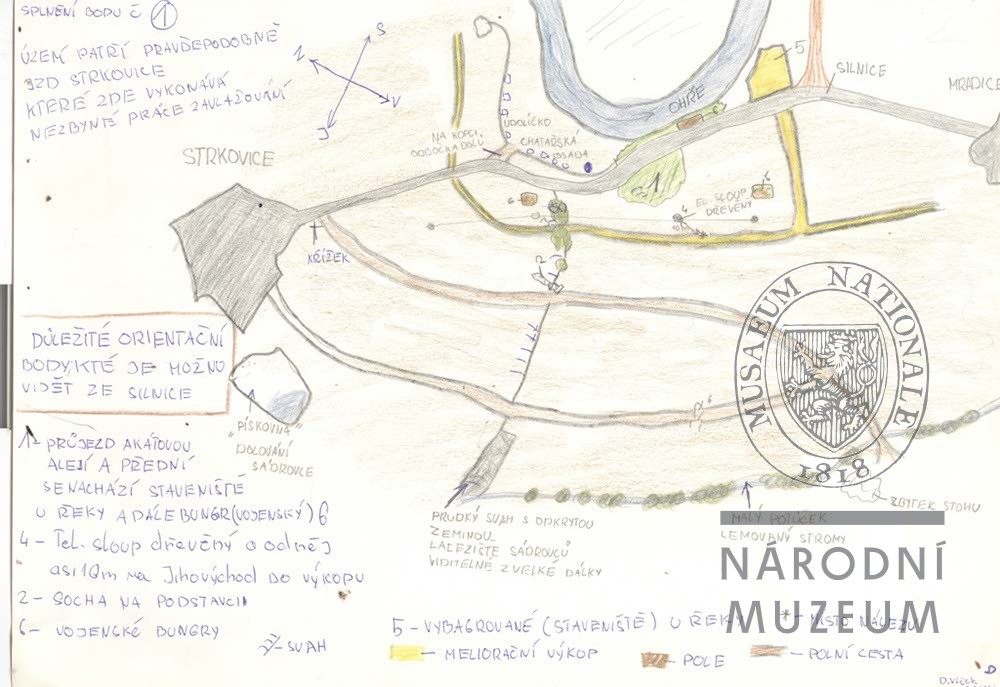 SPLNĚNÍ BODU Č 1
ÚZEMÍ PATŘÍ PRAVDĚPODOBNĚ
JZD STRKOVICE
KTERÉ ZDE VYKONÁVÁ
NEZBYTNÉ PRÁCE ZAVLAŽOVÁNÍ
S
Z
V
J
5
SILNICE
MRADICE
OHŘE
ÚDOLÍČKO
NA KOPCI,
CHATAŘSKÁ
OSADA
STRKOVICE
1
6
6
EL. SLOUP
DŘEVĚNÝ
4
KŘÍŽEK
DŮLEŽITÉ ORIENTAČNÍ
BODY, KTÉ JE MOŽNO
VIDĚT ZE SILNICE
"PÍSKOVNA"
DOLOVÁNÍ
SÁDROVCE
1- PRŮJEZD AKÁTOVOU
ALEJÍ A PŘEDNÍ
SE NACHÁZÍ STAVENIŠTĚ
U ŘEKY A DÁLE BUNGR (VOJENSKÝ) 6
4 - Tel. sloup dřevěný a od něj
asi 10m na Jihovýchod do výkopu
2 - SOCHA NA PODSTAVCI
6 - VOJENSKÉ BUNGRY
- SVAH
PRUDKÝ SVAH S ODKRYTOU
ZEMINOU
LALEZIŠTE SÁDROVCŮ
VIDITELNÉ Z VELKÉ DÁLKY
ZBYTEK STOHU
MALÝ POTŮČEK
LEMOVANÝ STROMY
5 - VYBAGROVANÉ (STAVENIŠTĚ) U ŘEKY
- MÍSTO NÁLEZU
- MELIORAČNÍ VÝKOP
- POLE
- POLNÍ CESTA
D. Vlček
MUSAEUM NATIONALE
1818
NÁRODNÍ
MUZEUM